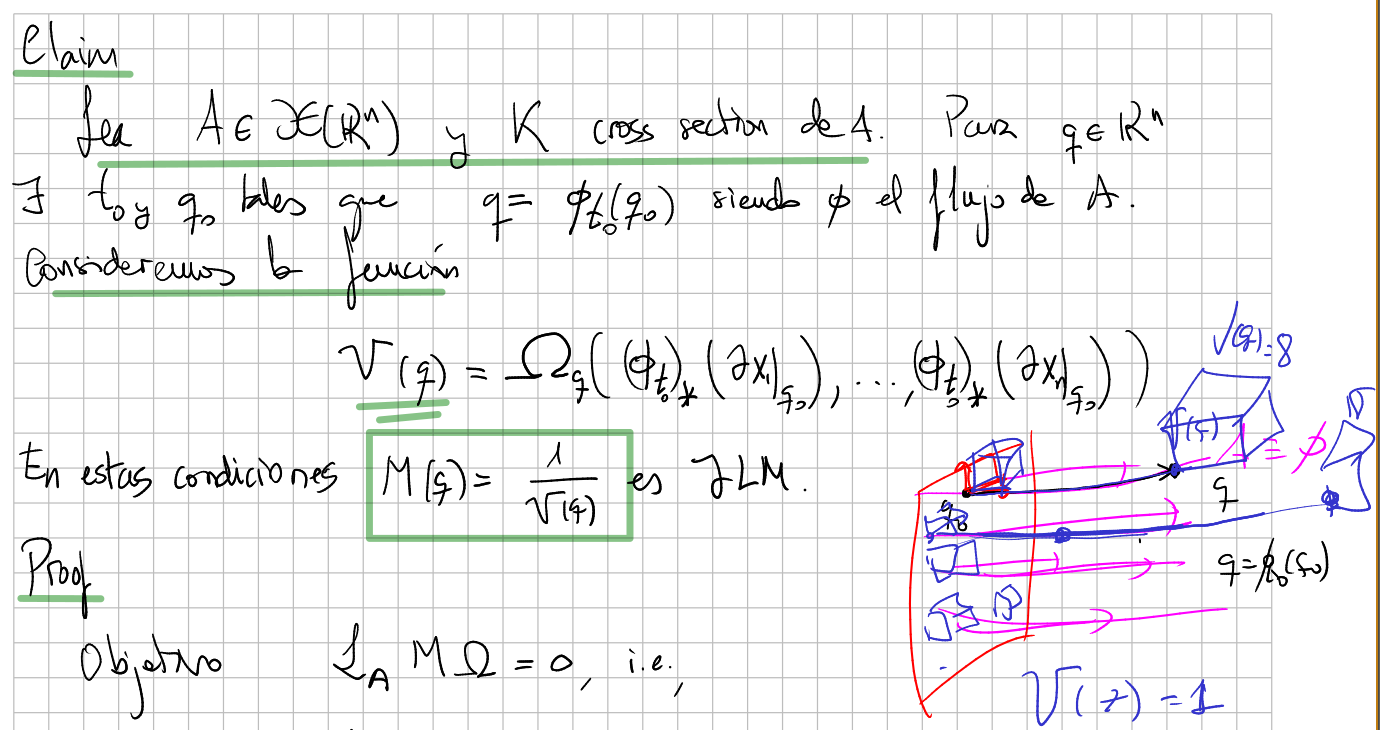 Claim
Sea A ∈ 𝔛(ℝⁿ) y K cross section de A. Para q ∈ ℝⁿ
∃ t₀ y q₀ tales que q = ϕ_{t₀}(q₀) siendo ϕ el flujo de A.
Consideremos la función
V(q) = Ω_q((ϕ_{t₀})_*(∂x₁|_{q₀}), ..., (ϕ_{t₀})_*(∂xₙ|_{q₀}))
V(q)=8
En estas condiciones M(q) = 1/V(q) es JLM.
A ≡ ϕ
q₀
q
q = ϕ_{t₀}(q₀)
Proof
Objetivo ℒ_A MΩ = 0, i.e.,
V( ) = 1